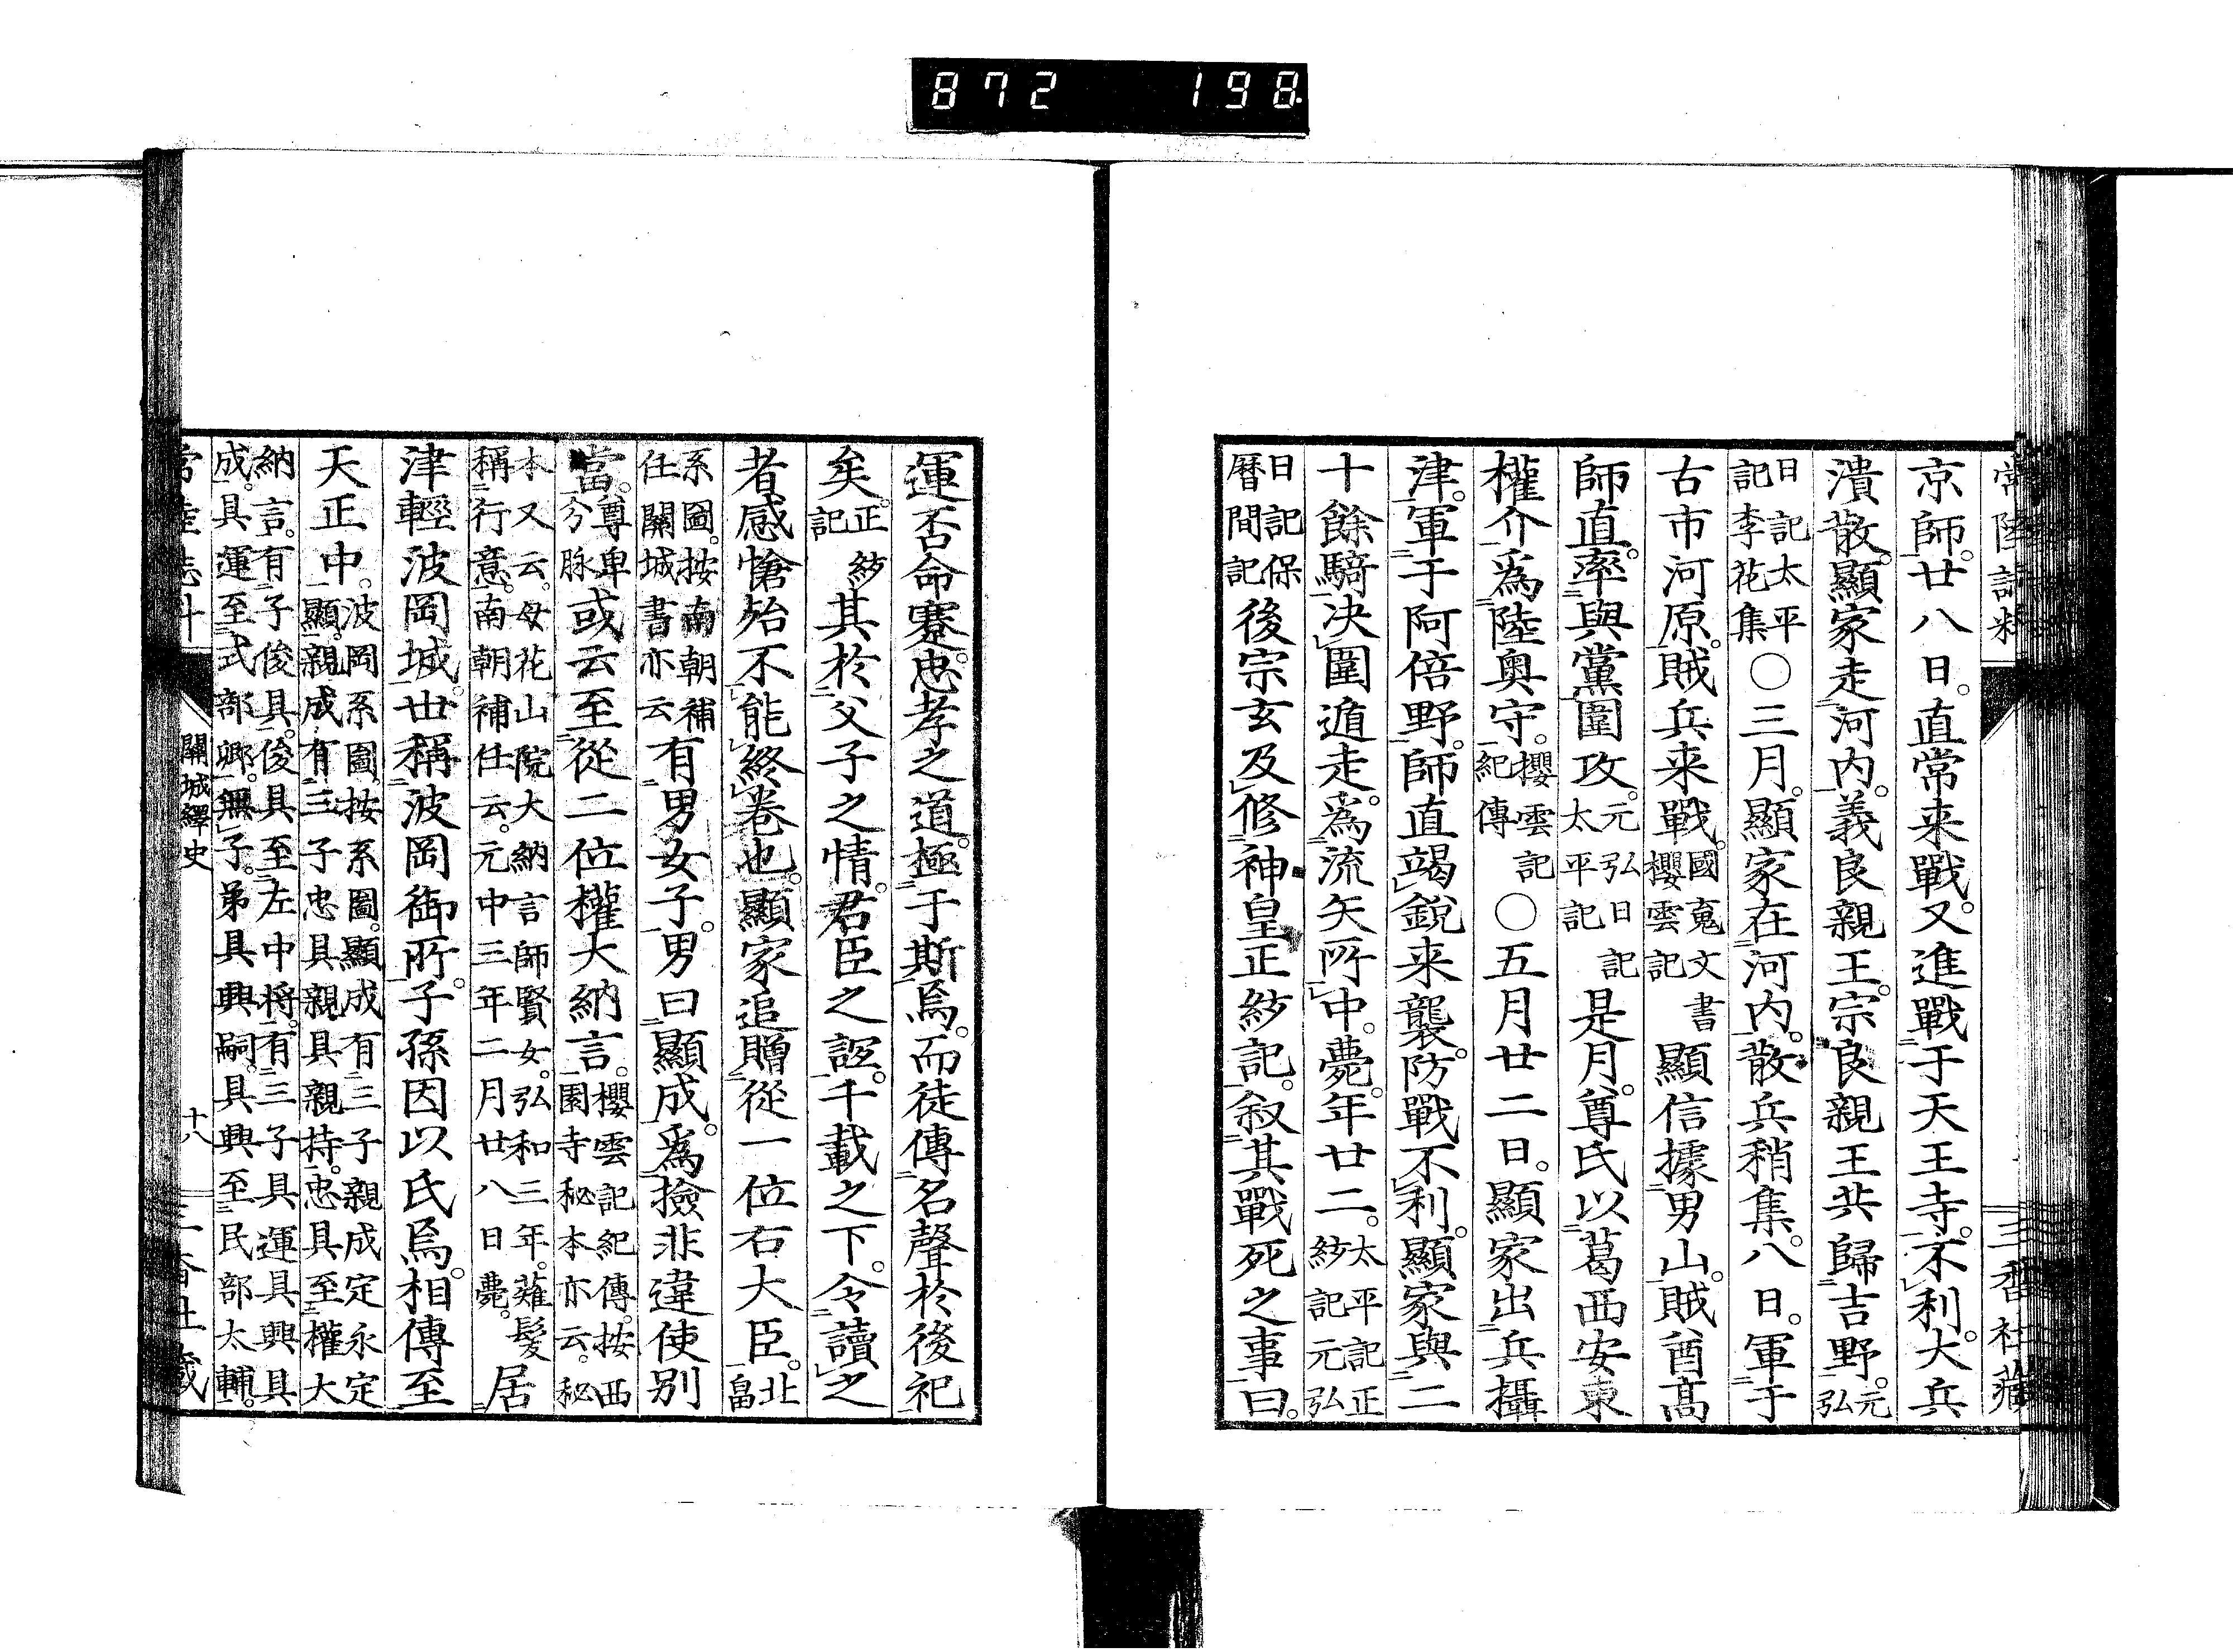 872 198
常陸誌料 三香社藏
京師。廿八日。直常来戰。又進戰于天王寺。不利。大兵
潰散。顯家走河内。義良親王。宗良親王共歸吉野。元弘
日記太平記李花集〇三月。顯家在河内。散兵稍集。八日。軍于
古市河原。賊兵来戰。國寬文書櫻雲記顯信據男山。賊酋高
師直。率與黨圍攻。元弘日記太平記是月。尊氏以葛西安東
權介爲陸奥守。櫻雲記紀傳〇五月廿二日。顯家出兵攝
津。軍于阿倍野。師直竭銳来襲。防戰不利。顯家與二
十餘騎決圍遁走。爲流矢所中。薨。年廿二。太平記正紗記元弘
日記保暦間記後宗玄及修神皇正紗記。叙其戰死之事曰。
運否命蹇。忠孝之道。極于斯焉。而徒傳名聲於後祀
矣。正紗記其於父子之情。君臣之誼。千載之下。令讀之
者感愴殆不能終卷也。顯家追贈從一位右大臣。北畠
系圖。按南朝補任關城書亦云云有男女子。男曰顯成。爲撿非違使別
當。尊卑分脉或云至從二位權大納言。櫻雲記紀傳。按西園寺秘本亦云。秘
本又云。母花山院大納言師賢女。弘和三年。薙髮稱行意。南朝補任云。元中三年二月廿八日薨。居
津輕波岡城。世稱波岡御所。子孫因以氏焉。相傳至
天正中。波岡系圖。按系圖。顯成有三子親成定永定顯。親成有三子忠具親具親持。忠具至權大
納言。有子俊具。俊具至左中将。有三子具運具興具
成。具運至式部卿。無子。弟具興嗣。具興至民部太輔。
關城繹史 十八